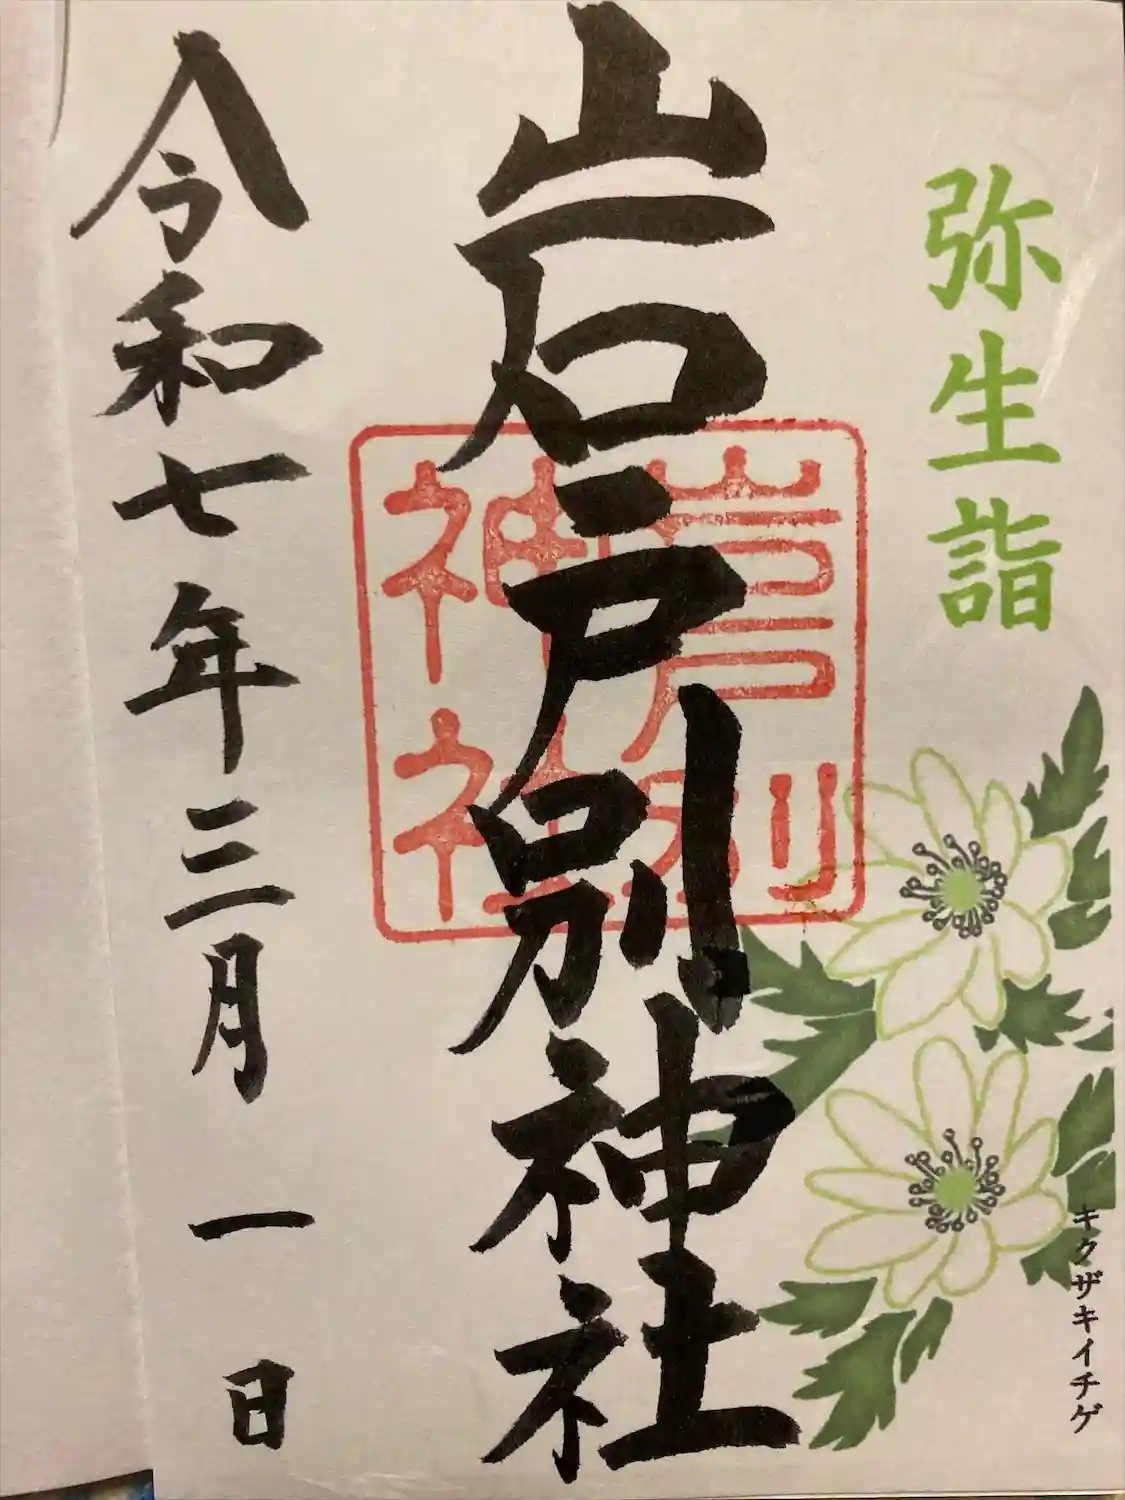 弥生詣
キクザキイチゲ
岩戸別神社
岩戸別
神社
令和七年三月一日